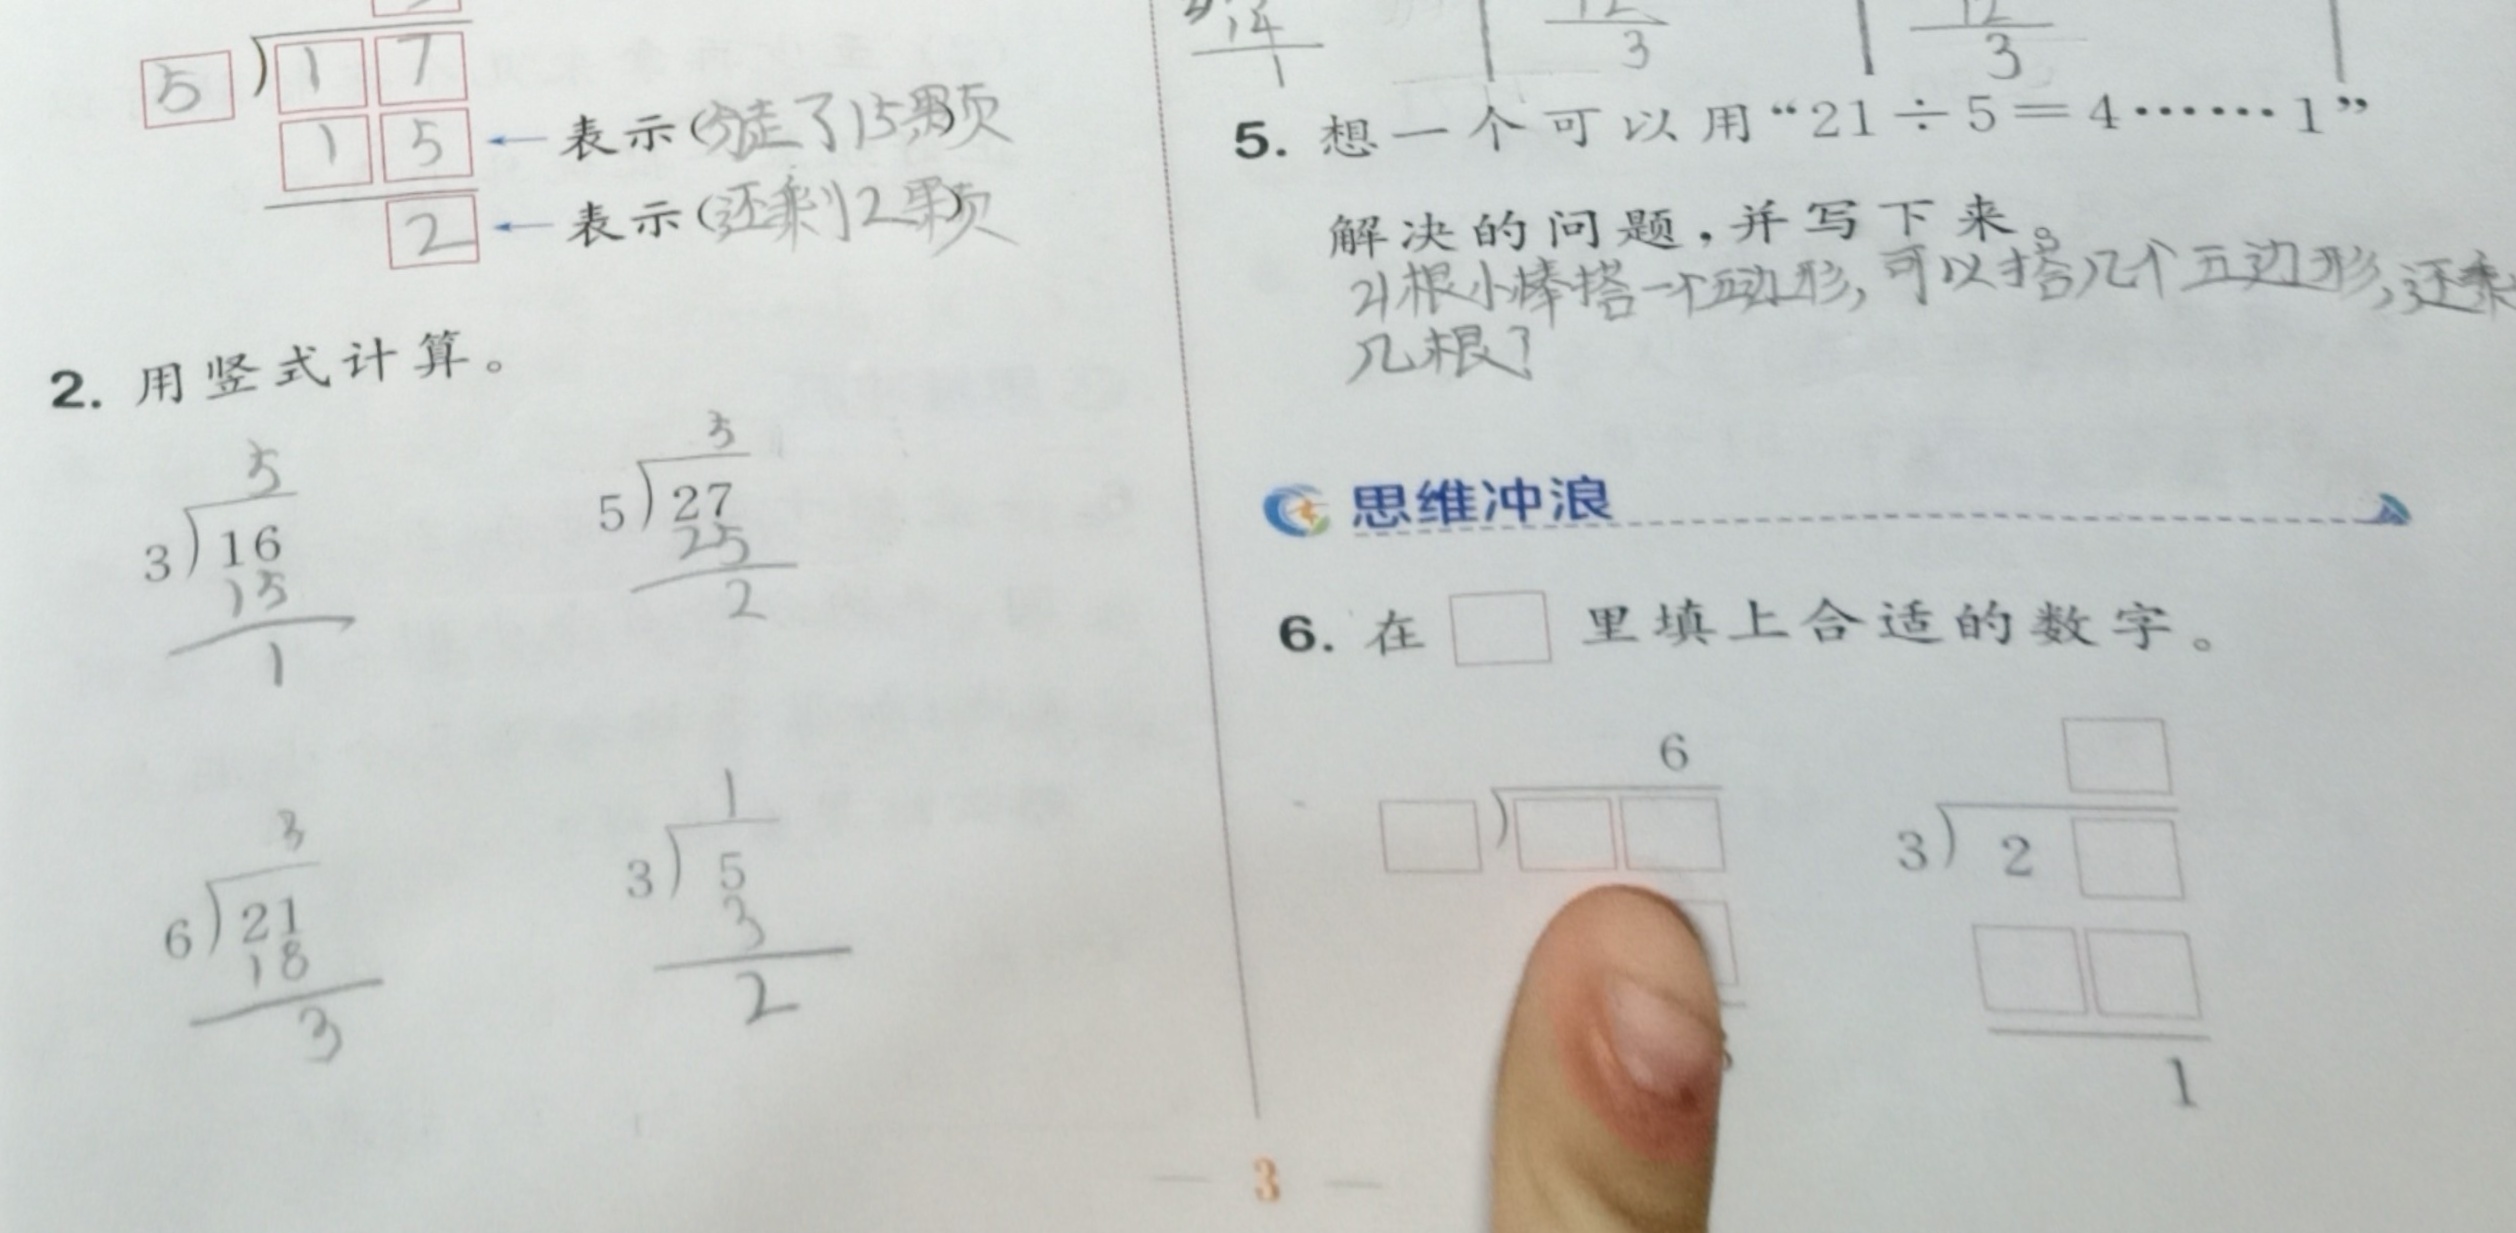 5 ) 1 7
1 5 ← 表示(分走了15颗)
2 ← 表示(还剩2颗)
2. 用竖式计算。
5
3 ) 16
15
1
5
5 ) 27
25
2
3
6 ) 21
18
3
1
3 ) 5
3
2
14
1
12
3
12
3
5. 想一个可以用“21÷5=4……1”
解决的问题,并写下来。
21根小棒搭一个五边形,可以搭几个五边形,还剩
几根?
思维冲浪
6. 在□里填上合适的数字。
6
3 ) 2
1
3